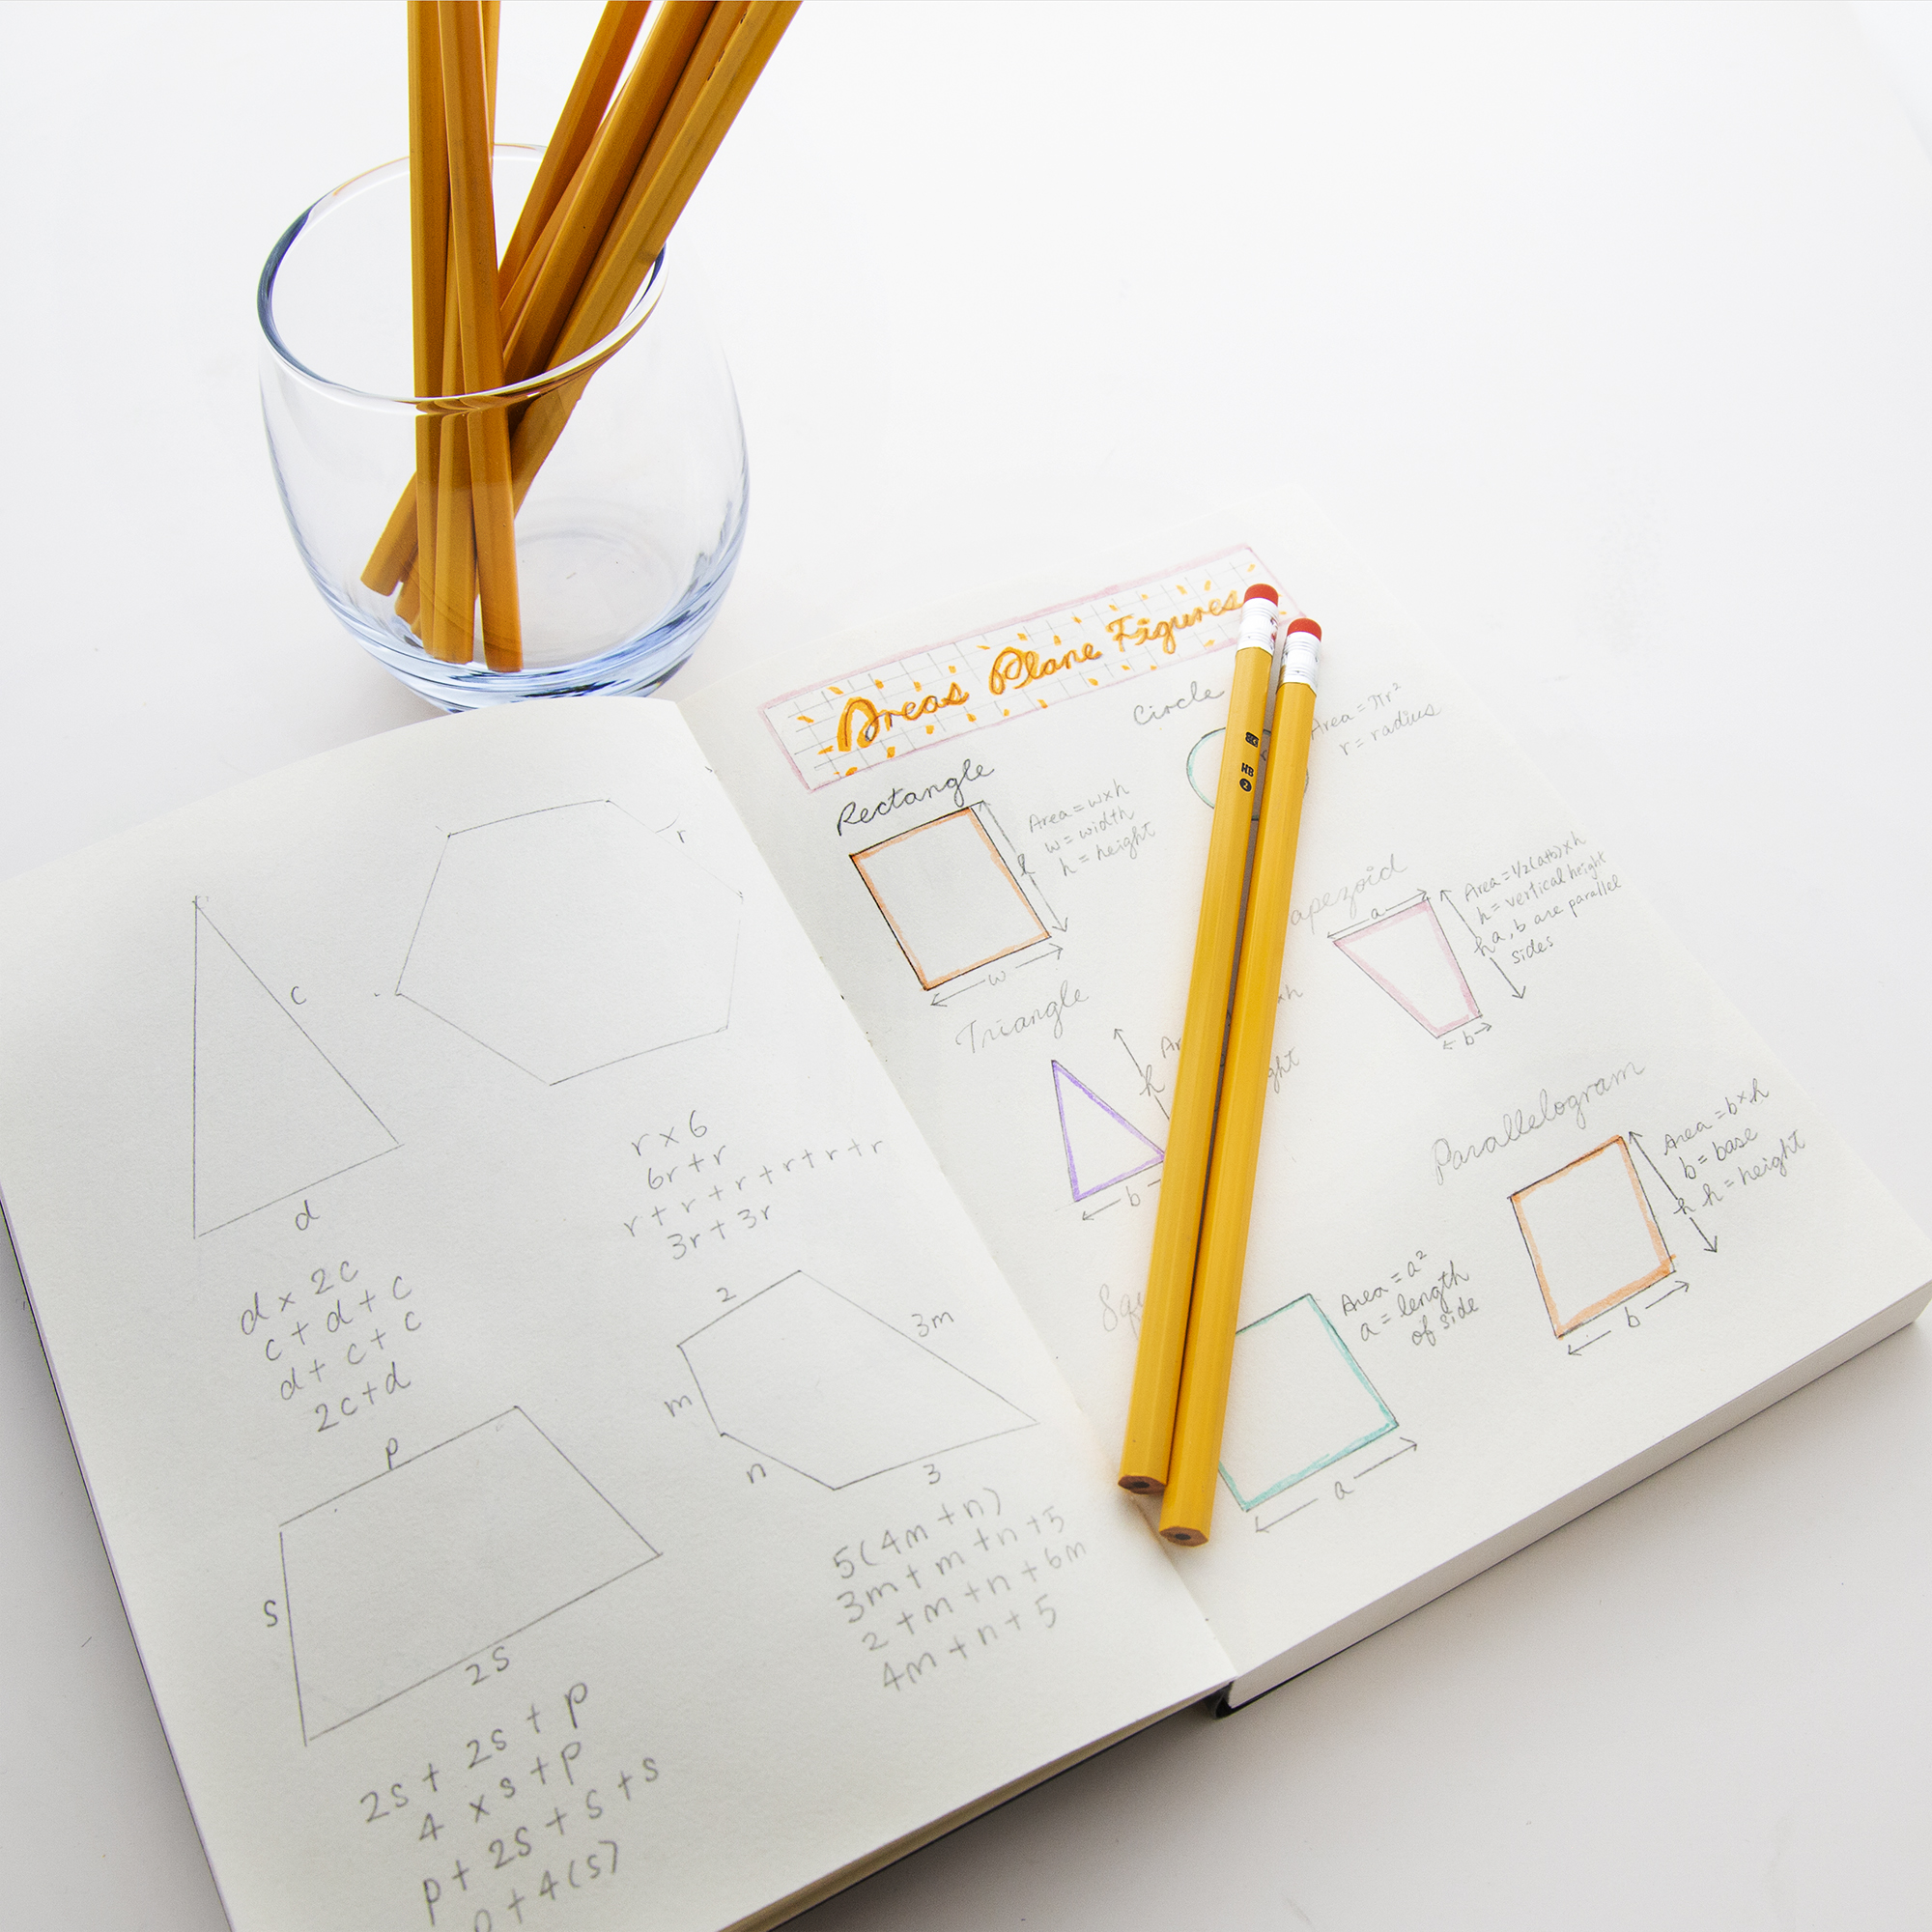 c
d
d × 2c
c + d + c
d + c + c
2c + d
r
r × 6
6r + r
r + r + r + r + r + r
3r + 3r
p
s
2s
2s + 2s + p
4 × s + p
p + 2s + s + s
p + 4(s)
2
3m
m
n
3
5(4m + n)
3m + m + n + 5
2 + m + n + 6m
4m + n + 5
Areas Plane Figures
Rectangle
w
Area = w×h
w = width
h = height
Circle
Area = πr²
r = radius
Triangle
h
b
×h
a
h
b
Area = 1/2(a+b)×h
h = vertical height
a, b are parallel
sides
Parallelogram
h
b
Area = b×h
b = base
h = height
a
Area = a²
a = length
of side
HB
2